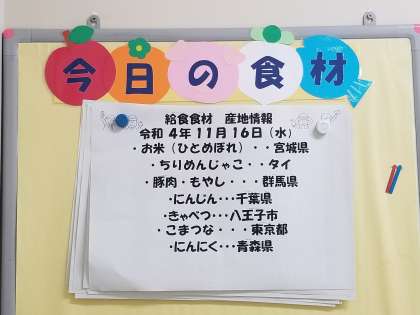 今日の食材
給食食材　産地情報
令和 4年 11月 16日（水）
・お米（ひとめぼれ）・・宮城県
・ちりめんじゃこ・・タイ
・豚肉・もやし・・・群馬県
・にんじん・・・千葉県
・きゃべつ・・・八王子市
・こまつな・・・東京都
・にんにく・・・青森県